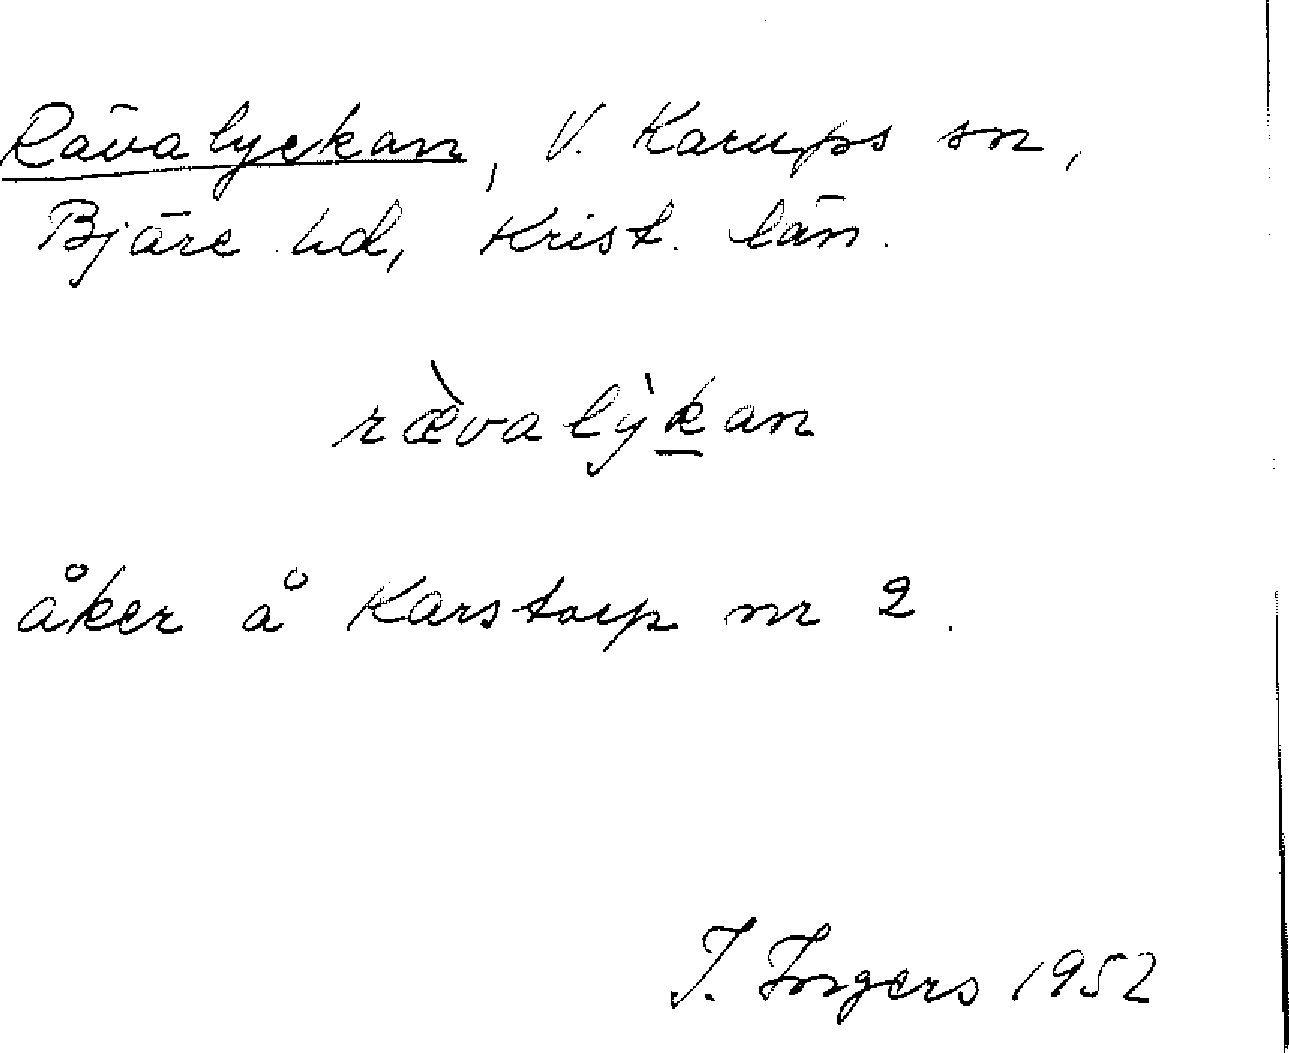 Rävalyckan, V. Karups sn,
Bjäre hd, Krist. län.
ræ̀valỳkan
åker å Karstorp nr 2.
I. Ingers 1952